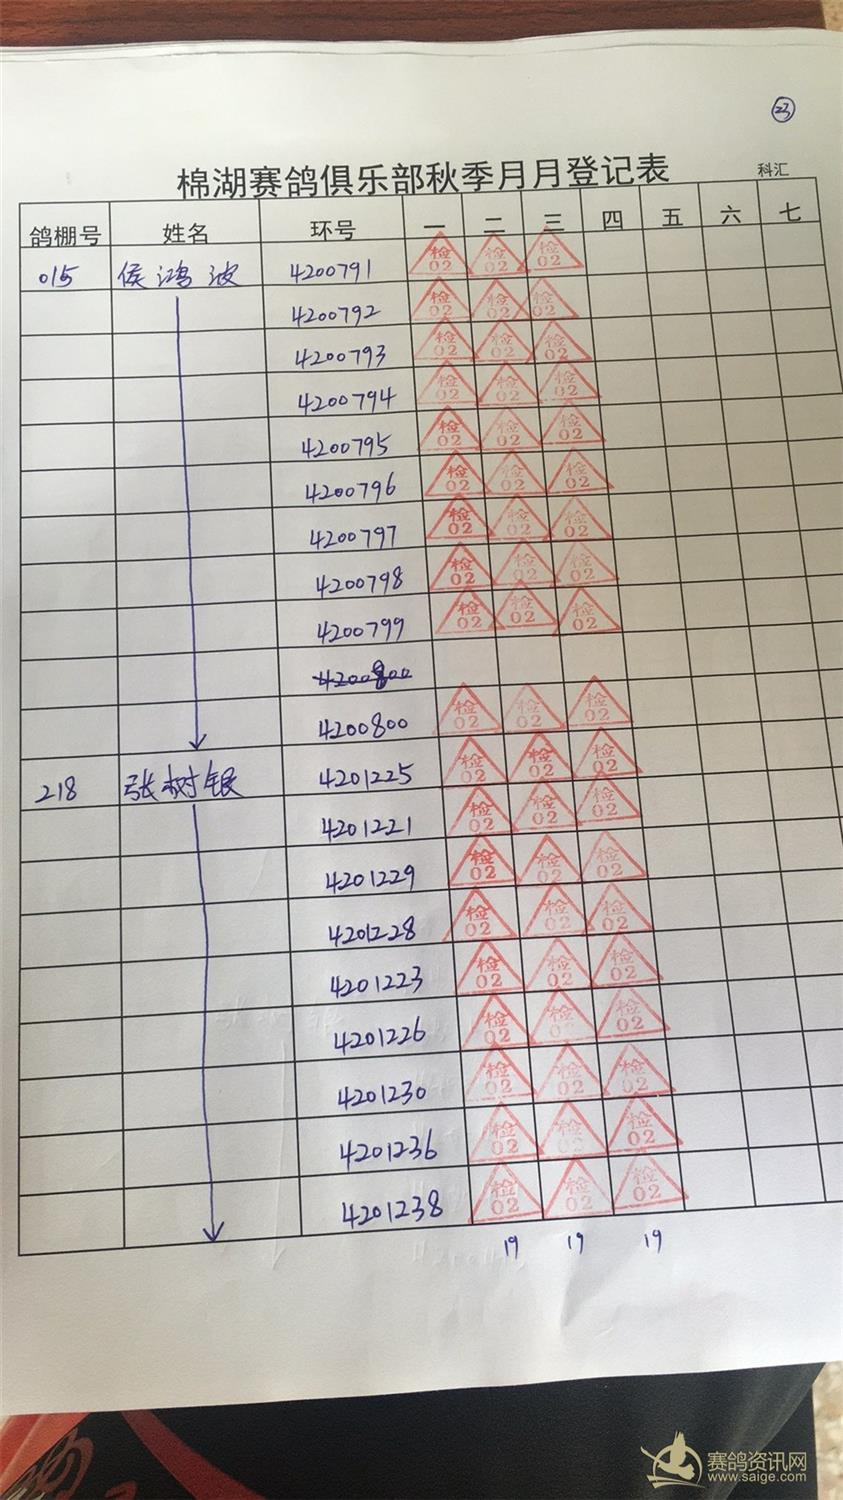 23
棉湖赛鸽俱乐部秋季月月登记表 科汇
鸽棚号 姓名 环号 一 二 三 四 五 六 七
015 侯鸿波 4200791 检02 检02 检02
4200792 检02 检02 检02
4200793 检02 检02 检02
4200794 检02 检02 检02
4200795 检02 检02 检02
4200796 检02 检02 检02
4200797 检02 检02 检02
4200798 检02 检02 检02
4200799 检02 检02 检02
4200800
4200800 检02 检02 检02
218 张树银 4201225 检02 检02 检02
4201221 检02 检02 检02
4201229 检02 检02 检02
4201228 检02 检02 检02
4201223 检02 检02 检02
4201226 检02 检02 检02
4201230 检02 检02 检02
4201236 检02 检02 检02
4201238 检02 检02 检02
19 19 19
赛鸽资讯网
www.saige.com